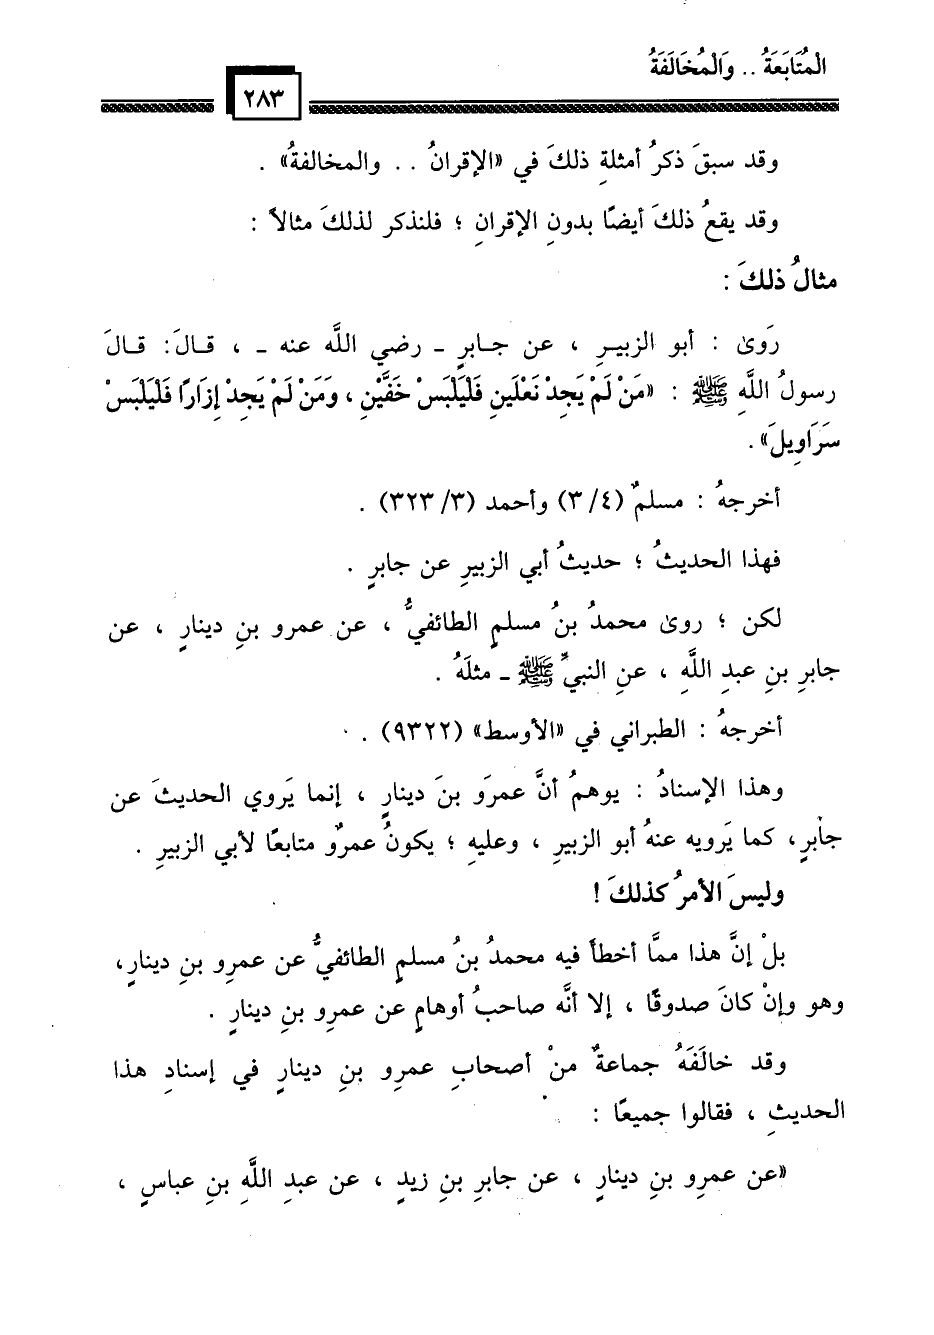 الْمُتَابَعَةُ .. وَالْمُخَالَفَةُ
٢٨٣
وقد سبقَ ذكرُ أمثلةِ ذلكَ في «الإقرانُ .. والمخالفةُ» .
وقد يقعُ ذلكَ أيضًا بدونِ الإقرانِ ؛ فلنذكر لذلكَ مثالاً :
مثالُ ذلكَ :
رَوىٰ : أبو الزبيرِ ، عن جابرٍ ـ رضي اللَّه عنه ـ ، قالَ: قالَ
رسولُ اللَّهِ ﷺ : «مَنْ لَمْ يَجِدْ نَعْلَينِ فَلْيَلْبَسْ خَفَّيْنِ ، وَمَنْ لَمْ يَجِدْ إِزَارًا فَلْيَلْبَسْ
سَرَاوِيلَ» .
أخرجهُ : مسلمٌ (٣/٤) وأحمد (٣٢٣/٣) .
فهذا الحديثُ ؛ حديثُ أبي الزبيرِ عن جابرٍ .
لكن ؛ روىٰ محمدُ بنُ مسلمٍ الطائفيُّ ، عن عمرو بنِ دينارٍ ، عن
جابرِ بنِ عبدِ اللَّهِ ، عنِ النبيِّ ﷺ ـ مثلَهُ .
أخرجهُ : الطبراني في «الأوسط» (٩٣٢٢) .
وهذا الإسنادُ : يوهمُ أنَّ عمرَو بنَ دينارٍ ، إنما يَروي الحديثَ عن
جابرٍ، كما يَرويه عنهُ أبو الزبيرِ ، وعليهِ ؛ يكونُ عمرٌو متابعًا لأبي الزبيرِ .
وليسَ الأمرُ كذلكَ !
بلْ إنَّ هذا ممَّا أخطأَ فيه محمدُ بنُ مسلمٍ الطائفيُّ عن عمرِو بنِ دينارٍ،
وهو وإنْ كانَ صدوقًا ، إلا أنَّه صاحبُ أوهامٍ عن عمرِو بنِ دينارٍ .
وقد خالَفَهُ جماعةٌ منْ أصحابِ عمرِو بنِ دينارٍ في إسنادِ هذا
الحديثِ ، فقالوا جميعًا :
«عن عمرِو بنِ دينارٍ ، عن جابرِ بنِ زيدٍ ، عن عبدِ اللَّهِ بنِ عباسٍ ،